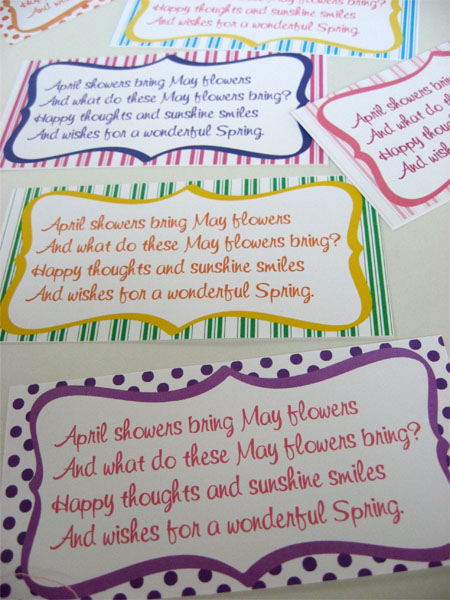 thoughts and sunshine smiles
And wishes for a wonderful Spring.
April showers bring May flowers
And what do these May flowers bring?
Happy thoughts and sunshine smiles
And wishes for a wonderful Spring.
April shower
And what do
Happy though
And wishes
April showers bring May flowers
And what do these May flowers bring?
Happy thoughts and sunshine smiles
And wishes for a wonderful Spring.
April showers bring May flowers
And what do these May flowers bring?
Happy thoughts and sunshine smiles
And wishes for a wonderful Spring.